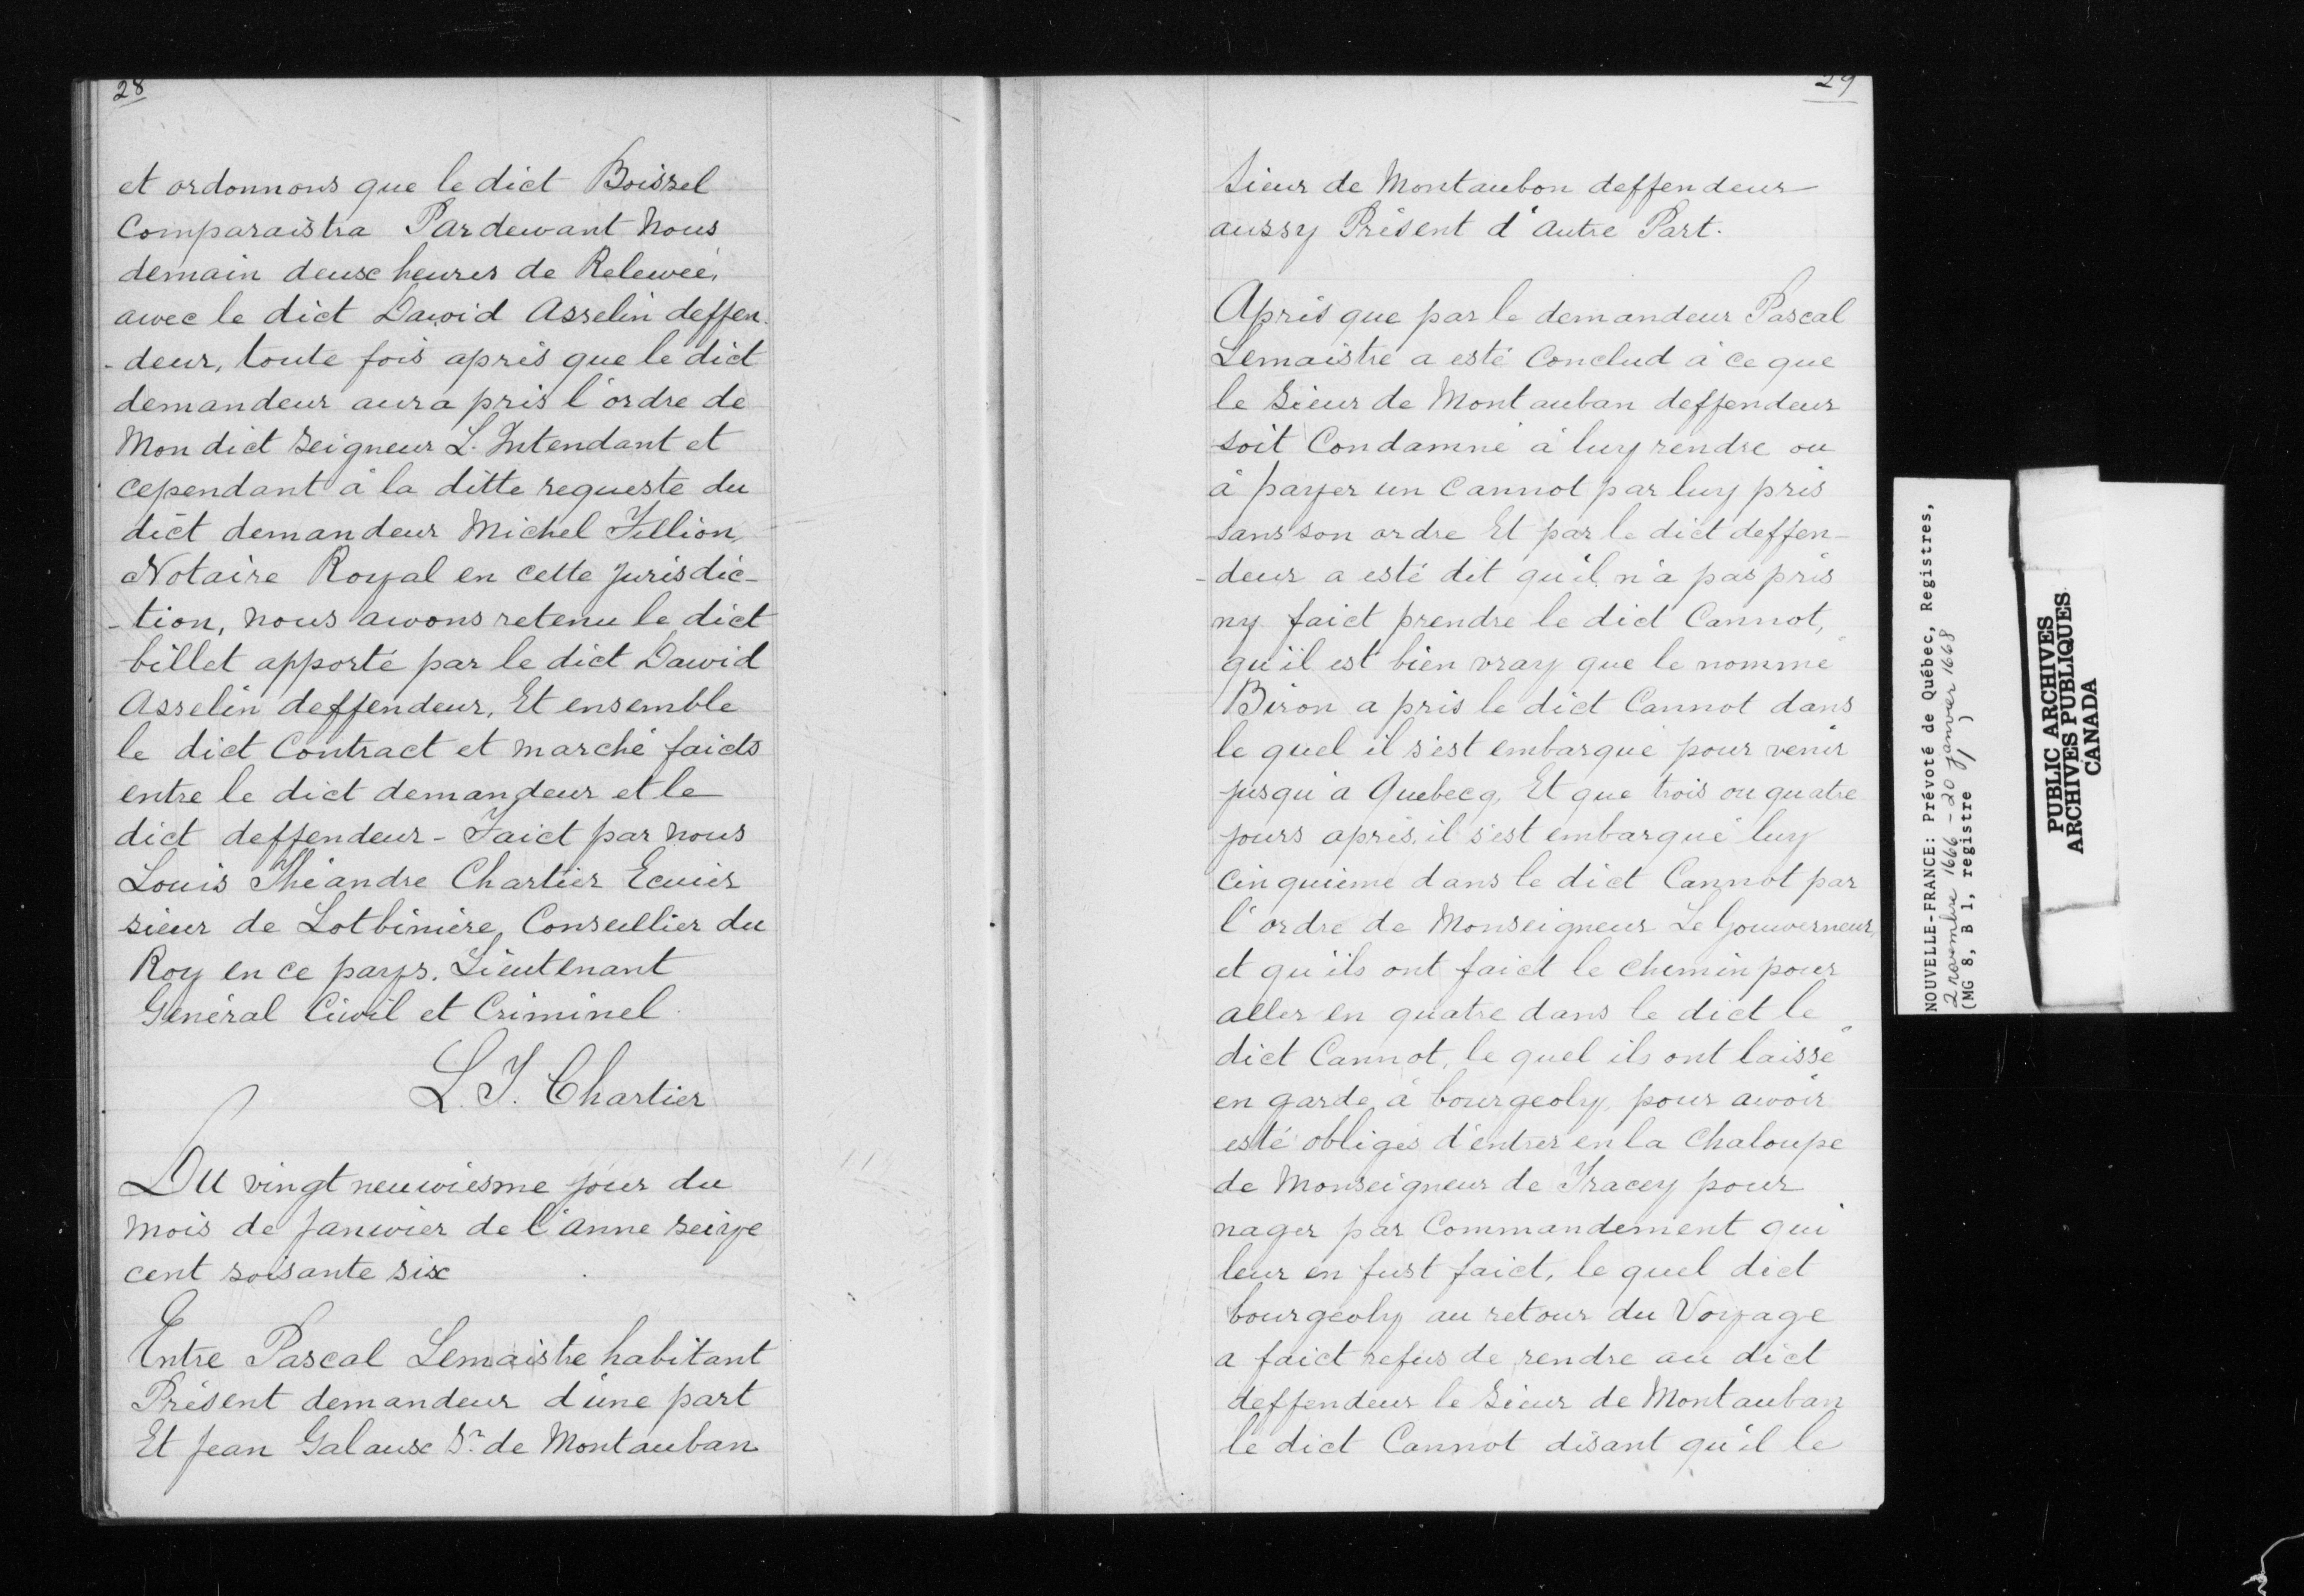 28
et ordonnons que le dict Boissel
Comparaistra Pardewant Nous
demain deux heures de Relewée,
awec le dict Dawid Asselin deffen-
-deur, toute fois après que le dict
demandeur aura pris l'ordre de
Mon dict Seigneur L. Intendant et
cependant à la ditte requeste du
dict demandeur Michel Fillion,
Notaire Royal en cette Jurisdic-
-tion, nous awons retenu le dict
billet apporté par le dict Dawid
Asselin deffendeur, Et ensemble
le dict Contract et marché faicts
entre le dict demandeur et le
dict deffendeur - Faict par nous
Louis Théandre Chartier Ecuier
sieur de Lotbinière, Conseillier du
Roy en ce pays. Lieutenant
Général Ciwil et Criminel.
L. T. Chartier
Du vingt neuwiesme jour du
mois de Janwier de l'anne seize
cent soisante six
Entre Pascal Lemaistre habitant
Présent demandeur d'une part
Et Jean Galaux Sr. de Montauban
29
Sieur de Montaubon deffendeur
aussy Présent d'autre Part.
Après que par le demandeur Pascal
Lemaistre a esté Conclud à ce que
le Sieur de Montauban deffendeur
soit Condamné à luy rendre ou
à payer un Cannot par luy pris
sans son ordre Et par le dict deffen-
-deur a esté dit qu'il n'a pas pris
ny faict prendre le dict Cannot,
qu'il est bien vray que le nommé
Biron a pris le dict Cannot dans
le quel il s'est embarqué pour venir
jusqu'a Quebecq, Et que trois ou quatre
jours après, il s'est embarqué luy
Cinquieme dans le dict Cannot par
l'ordre de Monseigneur Le Gouwerneur,
et qu'ils ont faict le chemin pour
aller en quatre dans le dict le
dict Cannot, le quel ils ont laissé
en garde à bourgeoly pour awoir
esté obligés d'entrer en la Chaloupe
de Monseigneur de Tracey pour
nager par Commandement qui
leur en fust faict, le quel dict
bourgeoly au retour du Voyage
a faict refus de rendre au dict
deffendeur le Sieur de Montauban
le dict Cannot disant qu'il le
NOUVELLE-FRANCE: Prévôté de Québec, Registres,
2 novembre 1666 - 20 janvier 1668
(MG 8, B 1, registre 1)
PUBLIC ARCHIVES
ARCHIVES PUBLIQUES
CANADA